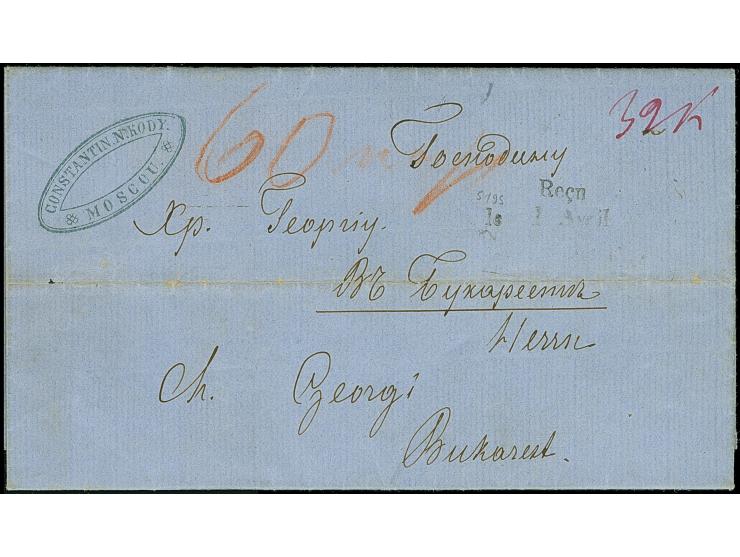 CONSTANTIN. N. KODY.
MOSCOU.
60
32 K
Господину
5195
Reçu
le 1 Avril
Хр. Георгіу.
Въ Бухарестъ
Herrn
Ch. Georgi
Bukarest.